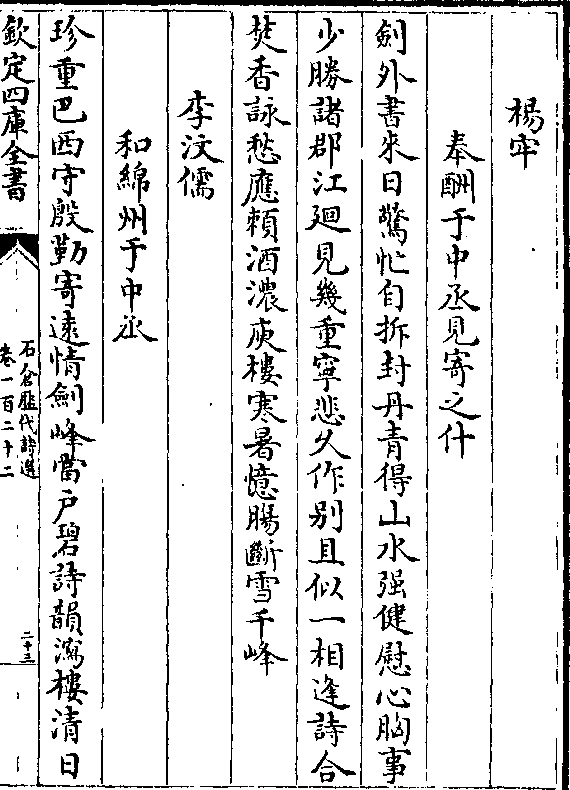 楊牢
奉酬于中丞見寄之什
劍外書來日驚忙自拆封丹青得山水强健慰心胸事
少勝諸郡江迴見幾重寧悲久作别且似一相逢詩合
焚香詠愁應頼酒濃庾樓寒暑憶腸斷雪千峰
李汶儒
和綿州于中丞
珍重巴西守殷勤寄遠情劍峰當户碧詩韻瀉樓清日
欽定四庫全書
石倉歴代詩選
卷一百二十二
二十三